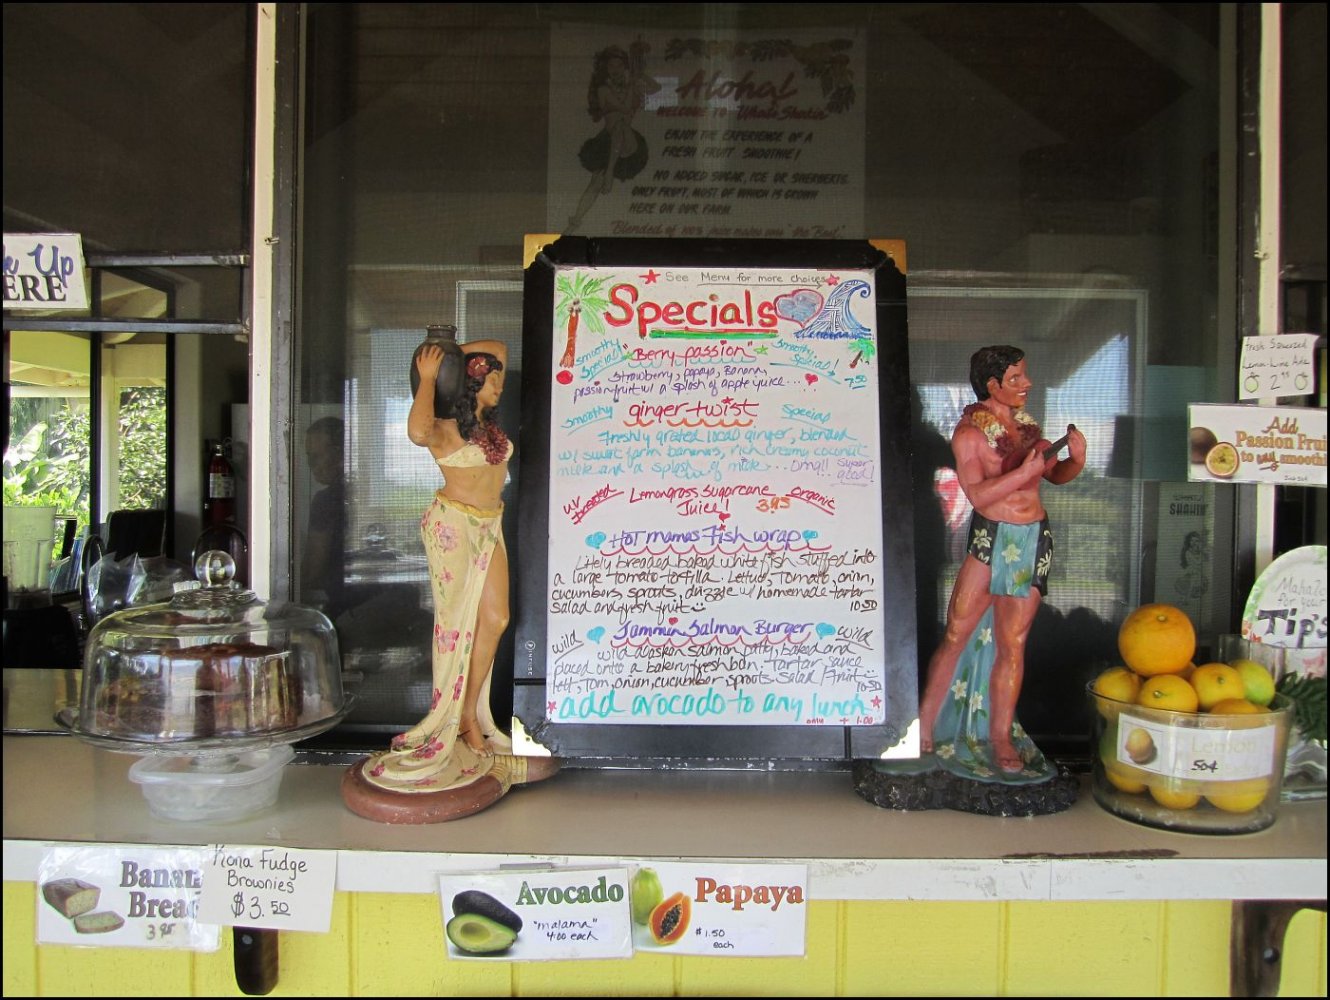 Aloha!
WELCOME TO What's Shakin'
ENJOY THE EXPERIENCE OF A
FRESH FRUIT SMOOTHIE!
NO ADDED SUGAR, ICE OR SHERBERTS.
ONLY FRUIT, MOST OF WHICH IS GROWN
HERE ON OUR FARM
"Blended
"the Best"
Up
ERE
See Menu for more choices
Specials
Smoothy
Special!
"Berry passion"
Smoothy
Special!
7.50
Strawberry, papaya, Banana,
passionfruit w/ a splash of apple juice...
Smoothy
ginger twist
Special
Freshly grated local ginger, blended
w/ sweet farm bananas, rich creamy coconut
milk and a splash of milk... omg!! Super
good!
w/
Lemongrass Sugarcane
organic
Juice!
3.95
Hot mamas Fish wrap
Litely breaded baked white fish stuffed into
a large tomato tortilla. Lettuce, Tomato, onion,
cucumbers, sprouts, drizzle w/ homemade tartar
salad and fresh fruit
10.50
wild
Jammin Salmon Burger
wild
wild alaskan salmon patty, baked and
placed onto a bakery fresh bun, tartar sauce
lett, tom, onion, cucumber, sprouts. Salad/Fruit
10.50
add avocado to any lunch
only + 1.00
Fresh Squeezed
Lemon-Lime Ade
2
Add
Passion Frui
to any smooth
SHAKIN'
Mahalo
for your
Tips
Lemon
50¢
Banan
Brea
3.95
Kona Fudge
Brownies
$3.50
Avocado
"malama"
4.00 each
Papaya
$1.50
each